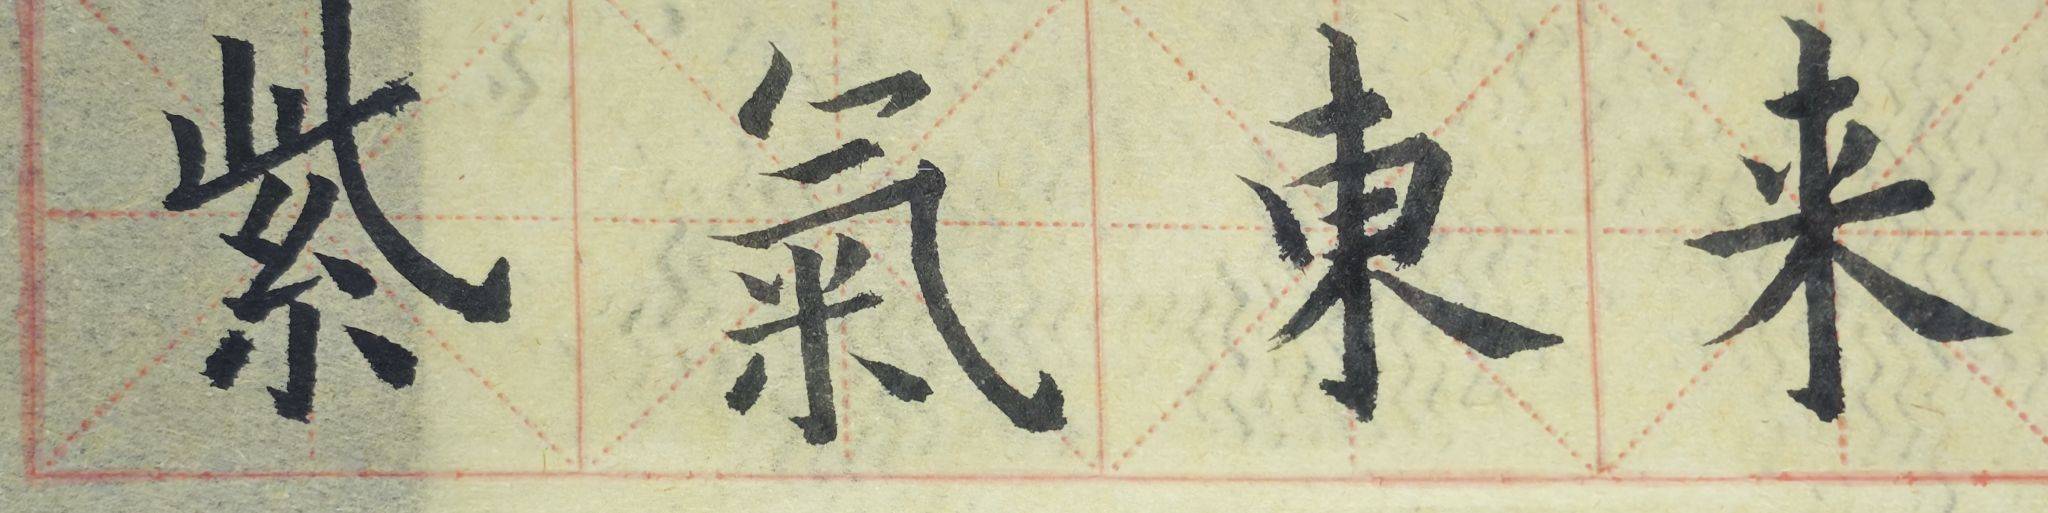 紫氣東来